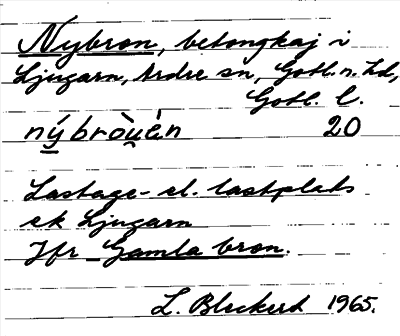 Nybron, betongkaj i
Ljugarn, Ardre sn, Gotl. n. hd,
Gotl. l.
nýbròu̯èn 20
Lastage- el. lastplats
ek Ljugarn
Jfr Gamla bron.
L. Bleckert 1965.